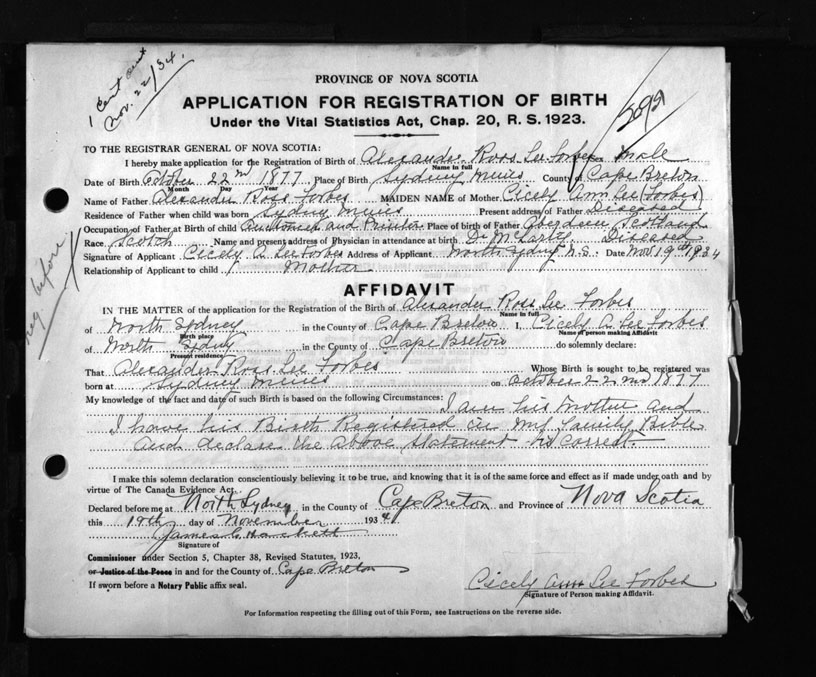 1 Cent out
Nov. 22/34.
PROVINCE OF NOVA SCOTIA
APPLICATION FOR REGISTRATION OF BIRTH
Under the Vital Statistics Act, Chap. 20, R. S. 1923.
TO THE REGISTRAR GENERAL OF NOVA SCOTIA:
I hereby make application for the Registration of Birth of Alexander Ross Lee Forbes Sex Male
Name in full
Date of Birth October 22nd 1877 Place of Birth Sydney Mines County of Cape Breton
Month Day Year
Name of Father Alexander Ross Forbes MAIDEN NAME of Mother Cicely Ann Lee (Forbes)
Residence of Father when child was born Sydney Mines Present address of Father Diseased
Occupation of Father at Birth of child and Printer Place of birth of Father Aberdeen Scotland
Race Scotch Name and present address of Physician in attendance at birth Dr McCarty Diseased
Signature of Applicant Cicely A Lee Forbes Address of Applicant North Sydney N.S. Date Nov 19th 1934
Relationship of Applicant to child Mother
reg before
AFFIDAVIT
IN THE MATTER of the application for the Registration of the Birth of Alexander Ross Lee Forbes
Name in full
of North Sydney in the County of Cape Breton I, Cicely A. Lee Forbes
Birth place Name of person making Affidavit
of North Sydny in the County of Cape Breton do solemnly declare:
Present residence
That Alexander Ross Lee Forbes Whose Birth is sought to be registered was
born at Sydney Mines on October 22nd 1877
My knowledge of the fact and date of such Birth is based on the following Circumstances: I am his Mother and
I have his Birth Registired in my Family Bible
and declare the above statement is correct.
I make this solemn declaration conscientiously believing it to be true, and knowing that it is of the same force and effect as if made under oath and by
virtue of The Canada Evidence Act.
Declared before me at North Sydney in the County of Cape Breton and Province of Nova Scotia
this 19th day of November 1934
James C. Hackett
Signature of
Commissioner under Section 5, Chapter 38, Revised Statutes, 1923,
or Justice of the Peace in and for the County of Cape Breton
If sworn before a Notary Public affix seal.
Cicely Ann Lee Forbes
Signature of Person making Affidavit.
For Information respecting the filling out of this Form, see Instructions on the reverse side.